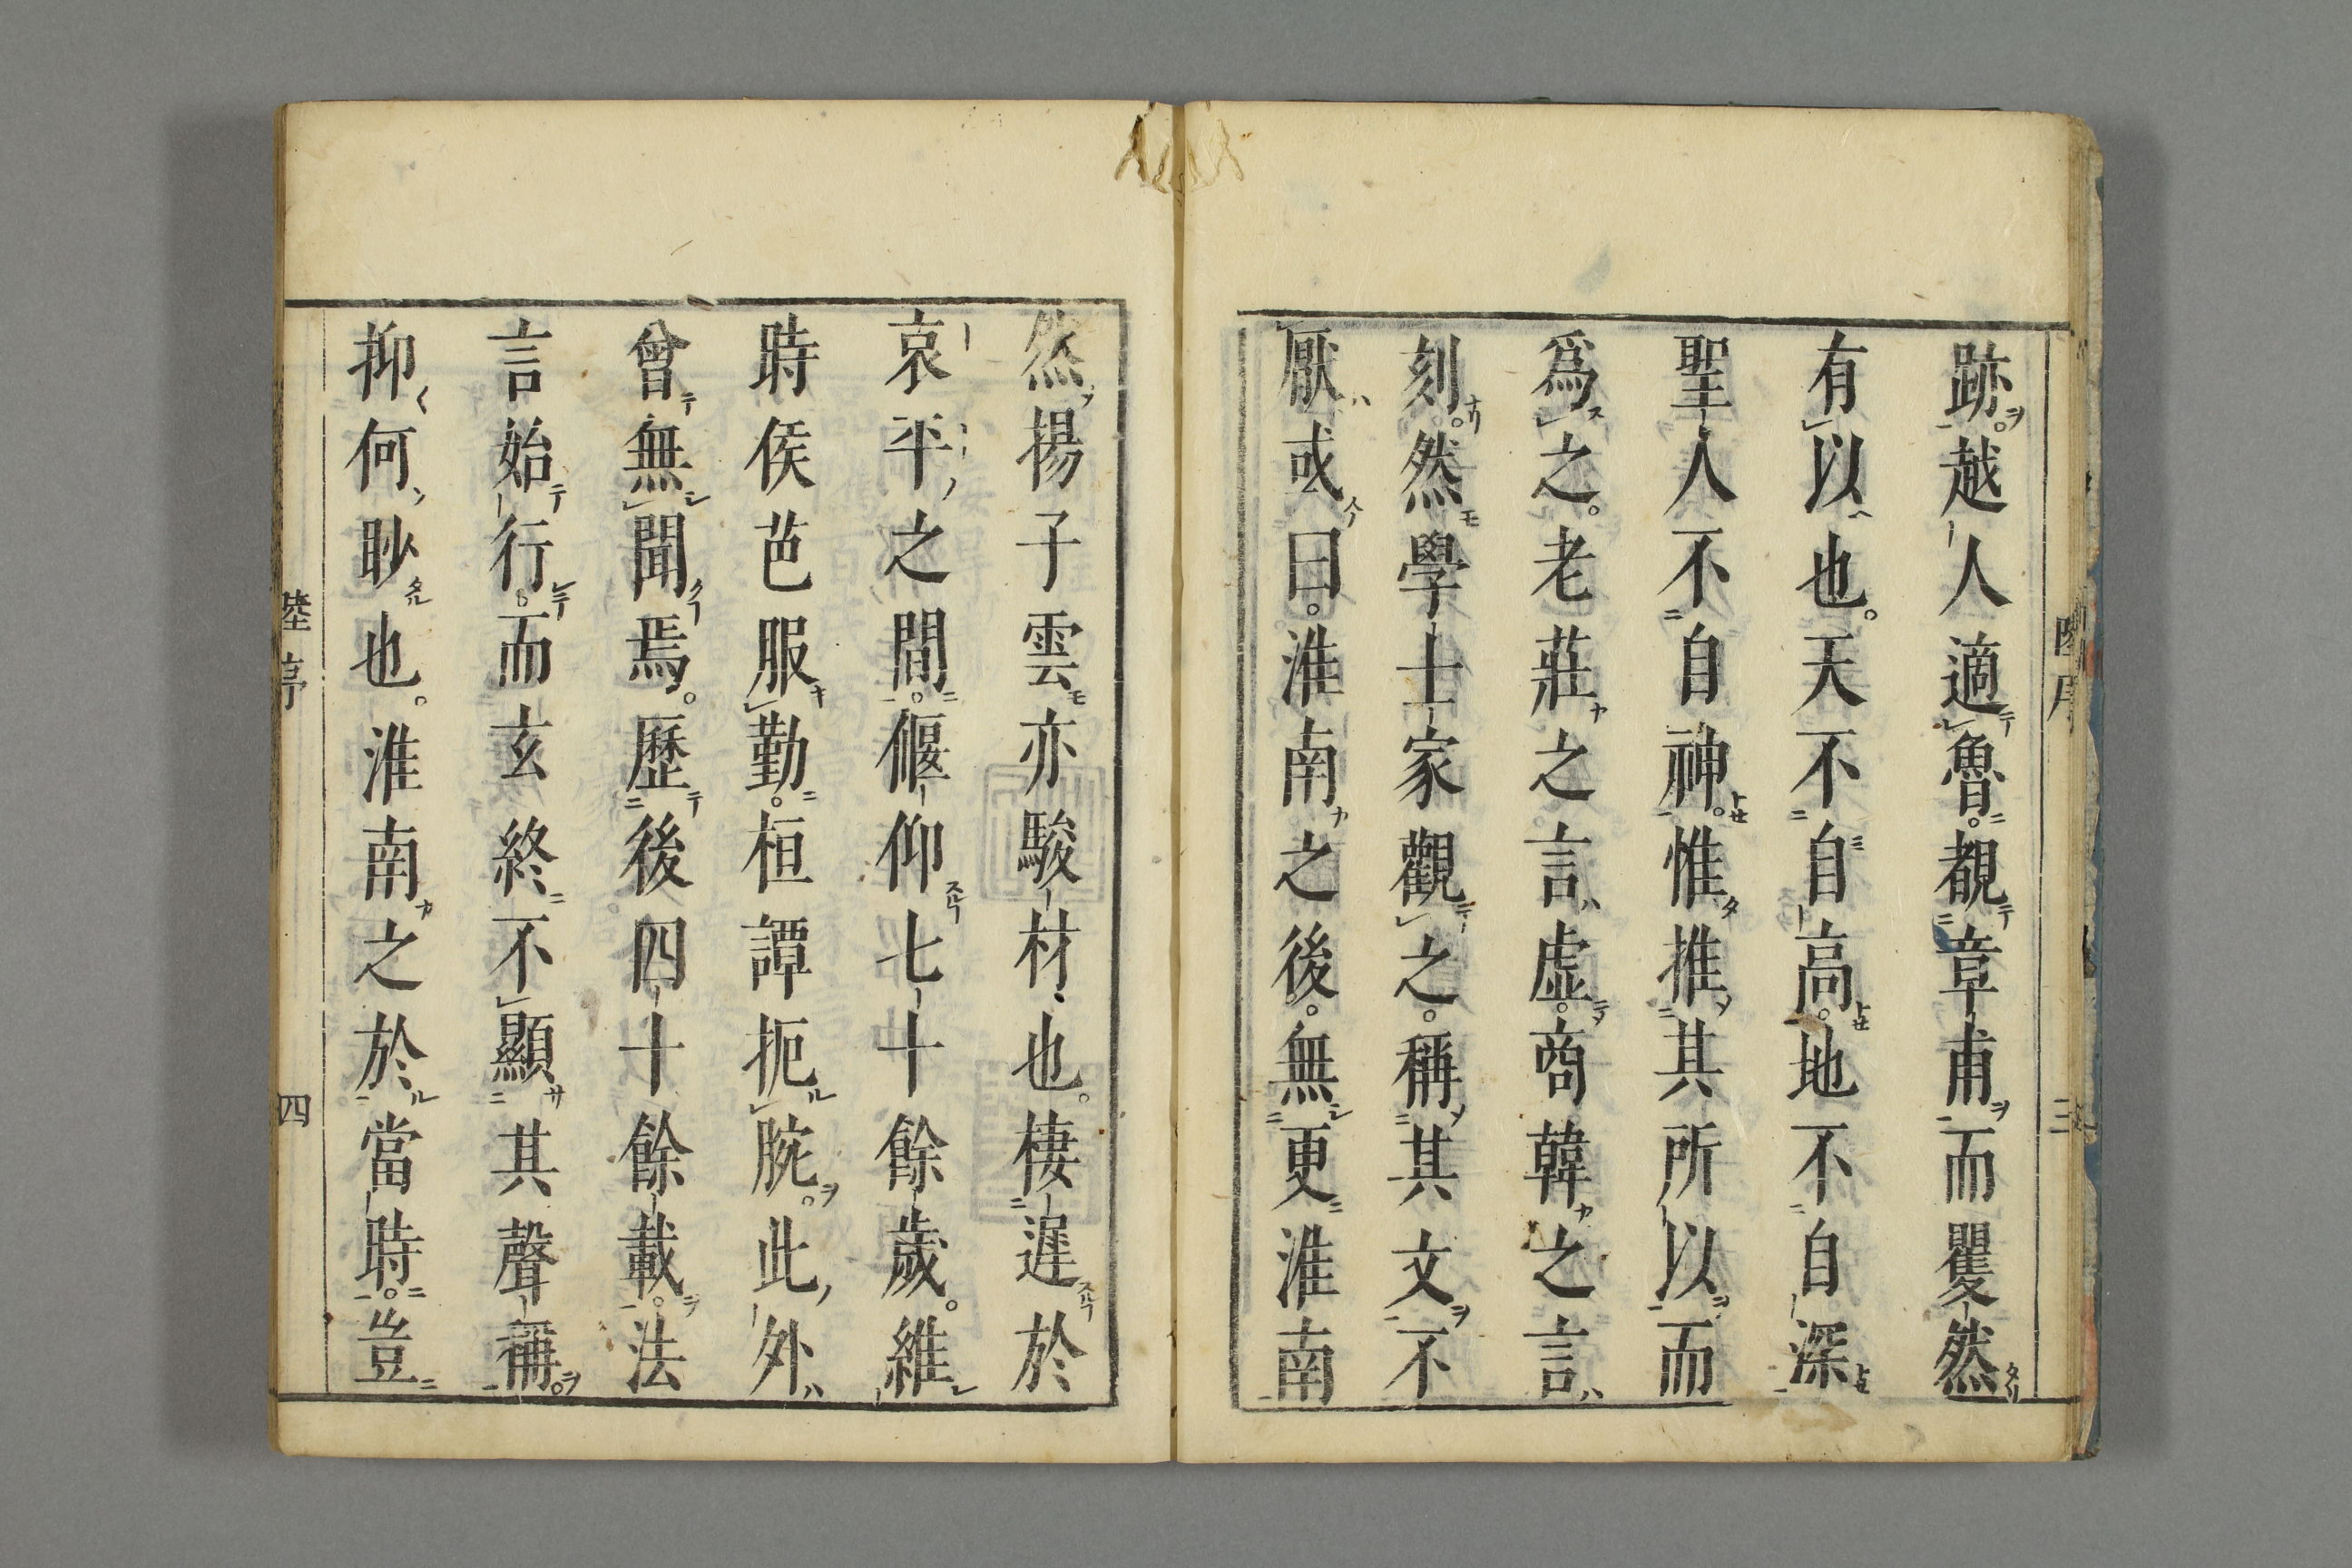 跡越人適魯覩章甫而矍然
有以也天不自高地不自深
聖人不自神惟推其所以而
爲之老莊之言虛商韓之言
刻然學士家觀之稱其文不
厭或曰淮南之後無更淮南
三
然揚子雲亦駿材也棲遲於
哀平之間偃仰七十餘歲維
時侯芭服勤桓譚扼腕此外
曾無聞焉歷後四十餘載法
言始行而玄終不顯其聲稱
抑何眇也淮南之於當時豈
陸序
四